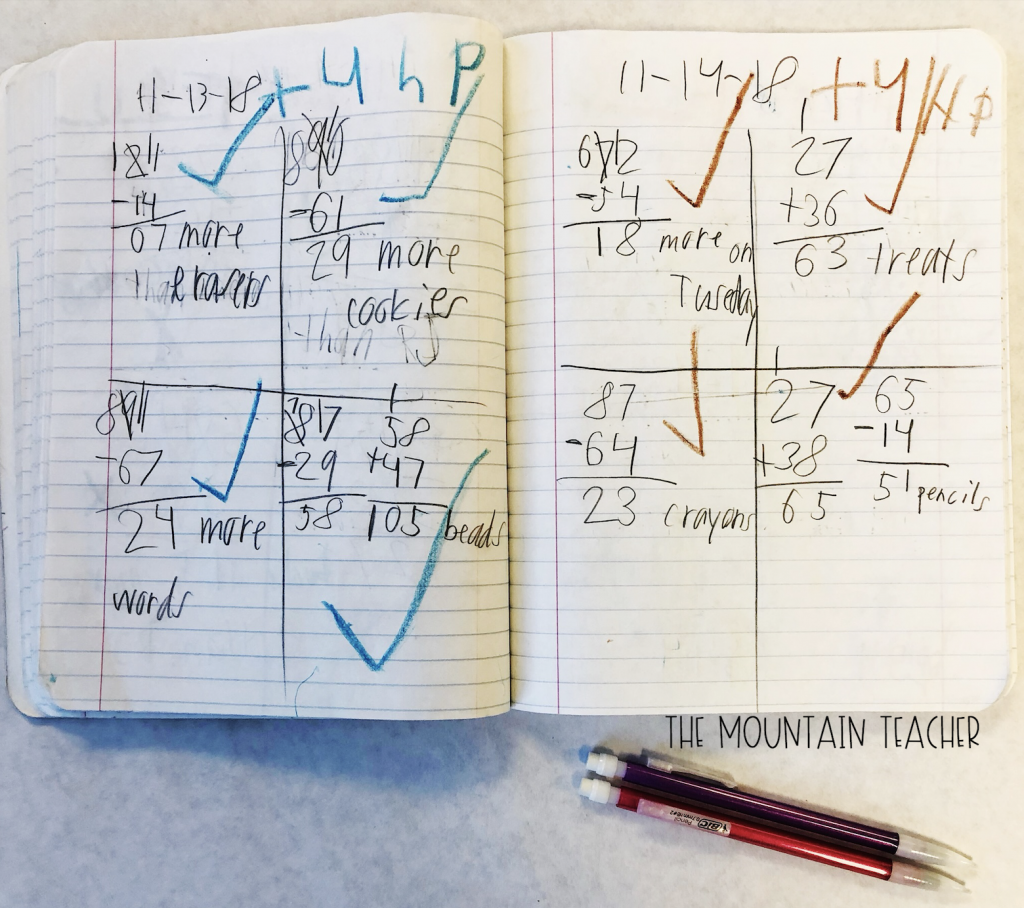 11-13-18 +4 hP
- 14
07 more
erasers
- 61
29 more
cookies
than PJ
8911
-67
24 more
words
817
-29
58
58
+47
105 beads
11-14-18 +4 HP
6712
-54
18 more on
Tuseday
1
27
+36
63 treats
87
-64
23 crayons
1
27
+38
65
65
-14
51 pencils
THE MOUNTAIN TEACHER
BIC